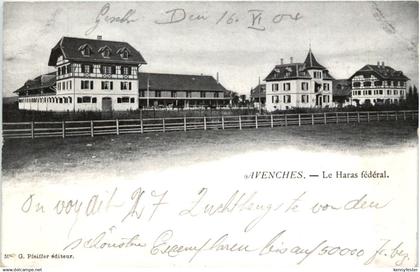 Gesch. Den 16. VI 04
AVENCHES. — Le Haras fédéral.
On voyait 27 Zuchthengste von den
schönsten Exemplaren bis auf 50000 fr. bez.
G. Pfeiffer éditeur.
kennyfotos